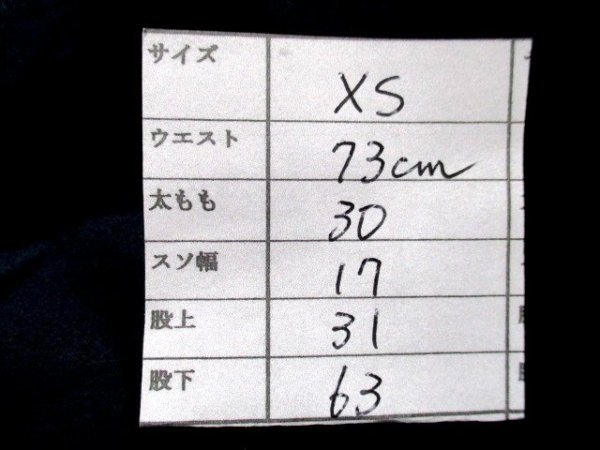 サイズ XS
ウエスト 73cm
太もも 30
スソ幅 17
股上 31
股下 63